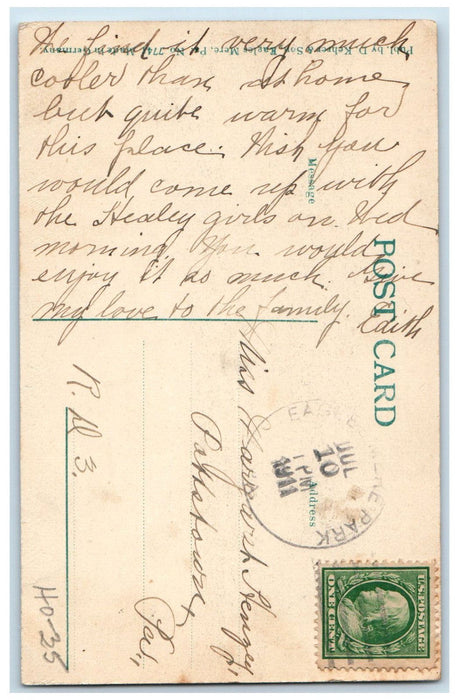 Publ. by D. Kehrer & Son, Eagles Mere, Pa. No. 7741 Made in Germany
We find it very much
cooler than at home
but quite warm for
this place. Wish you
would come up with
the Healey girls on Wed
morning. You would
enjoy it so much. Give
my love to the family.
Edith
Message
POST CARD
Address
EAGLES MERE PARK
JUL
10
1 PM
1911
U.S. POSTAGE
ONE CENT
Miss
Pottstown,
Pa.,
R. D. 3.
40-35